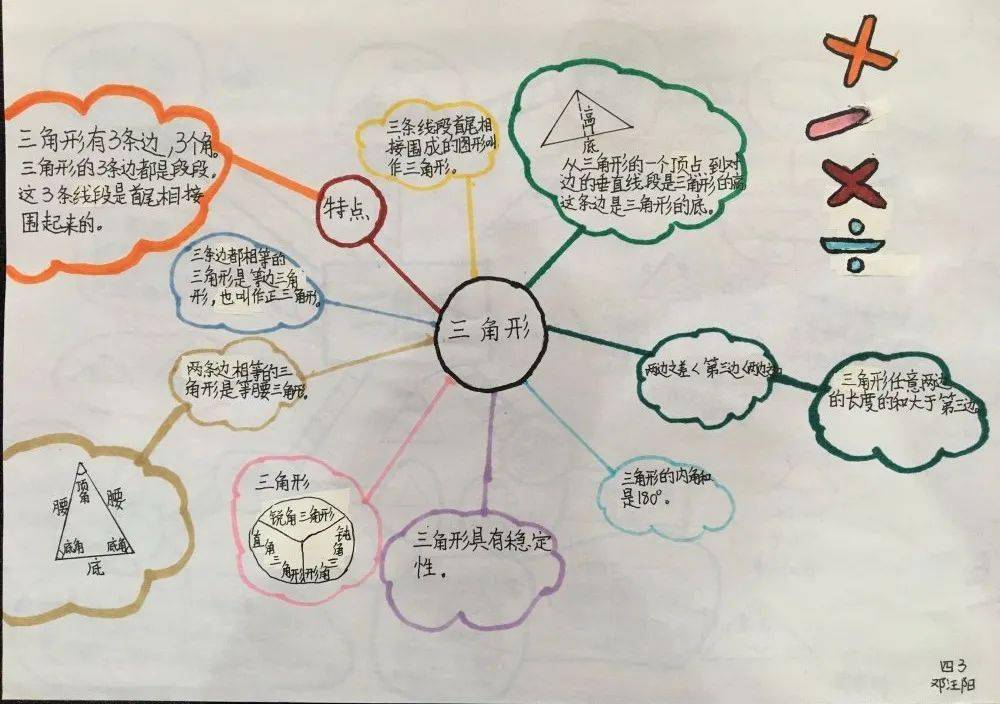 三角形有3条边,3个角。
三角形的3条边都是段段。
这3条线段是首尾相接
围起来的。
特点
三条线段首尾相
接围成的图形叫
作三角形。
高
底
从三角形的一个顶点到对
边的垂直线段是三角形的高
这条边是三角形的底。
三条边都相等的
三角形是等边三角
形,也叫作正三角形。
三角形
两条边相等的三
角形是等腰三角形。
两边之差<第三边<两边
三角形任意两边
的长度的和大于第三边
顶角
腰
腰
底角
底角
底
三角形
锐角三角形
直角三角形
钝角三角形
三角形具有稳定
性。
三角形的内角和
是180°。
四3
邓汪阳